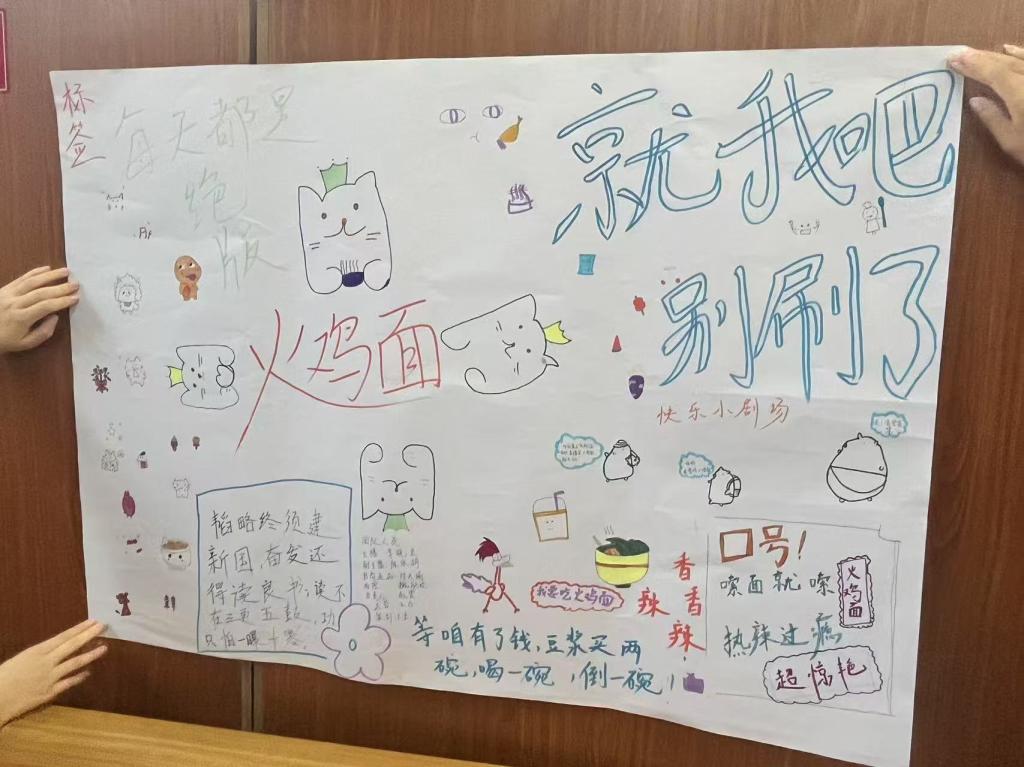 标签
每天都是
绝
版
就我吧
别刷了
火鸡面
快乐小剧场
韬略终须建
新国,奋发还
得读良书,读不
在三更五鼓,功
只怕一曝十寒。
团队人员
我要吃火鸡面
香香
辣辣
等咱有了钱,豆浆买两
碗,喝一碗,倒一碗!
口号!
嗦面就嗦
火鸡面
热辣过瘾
超惊艳